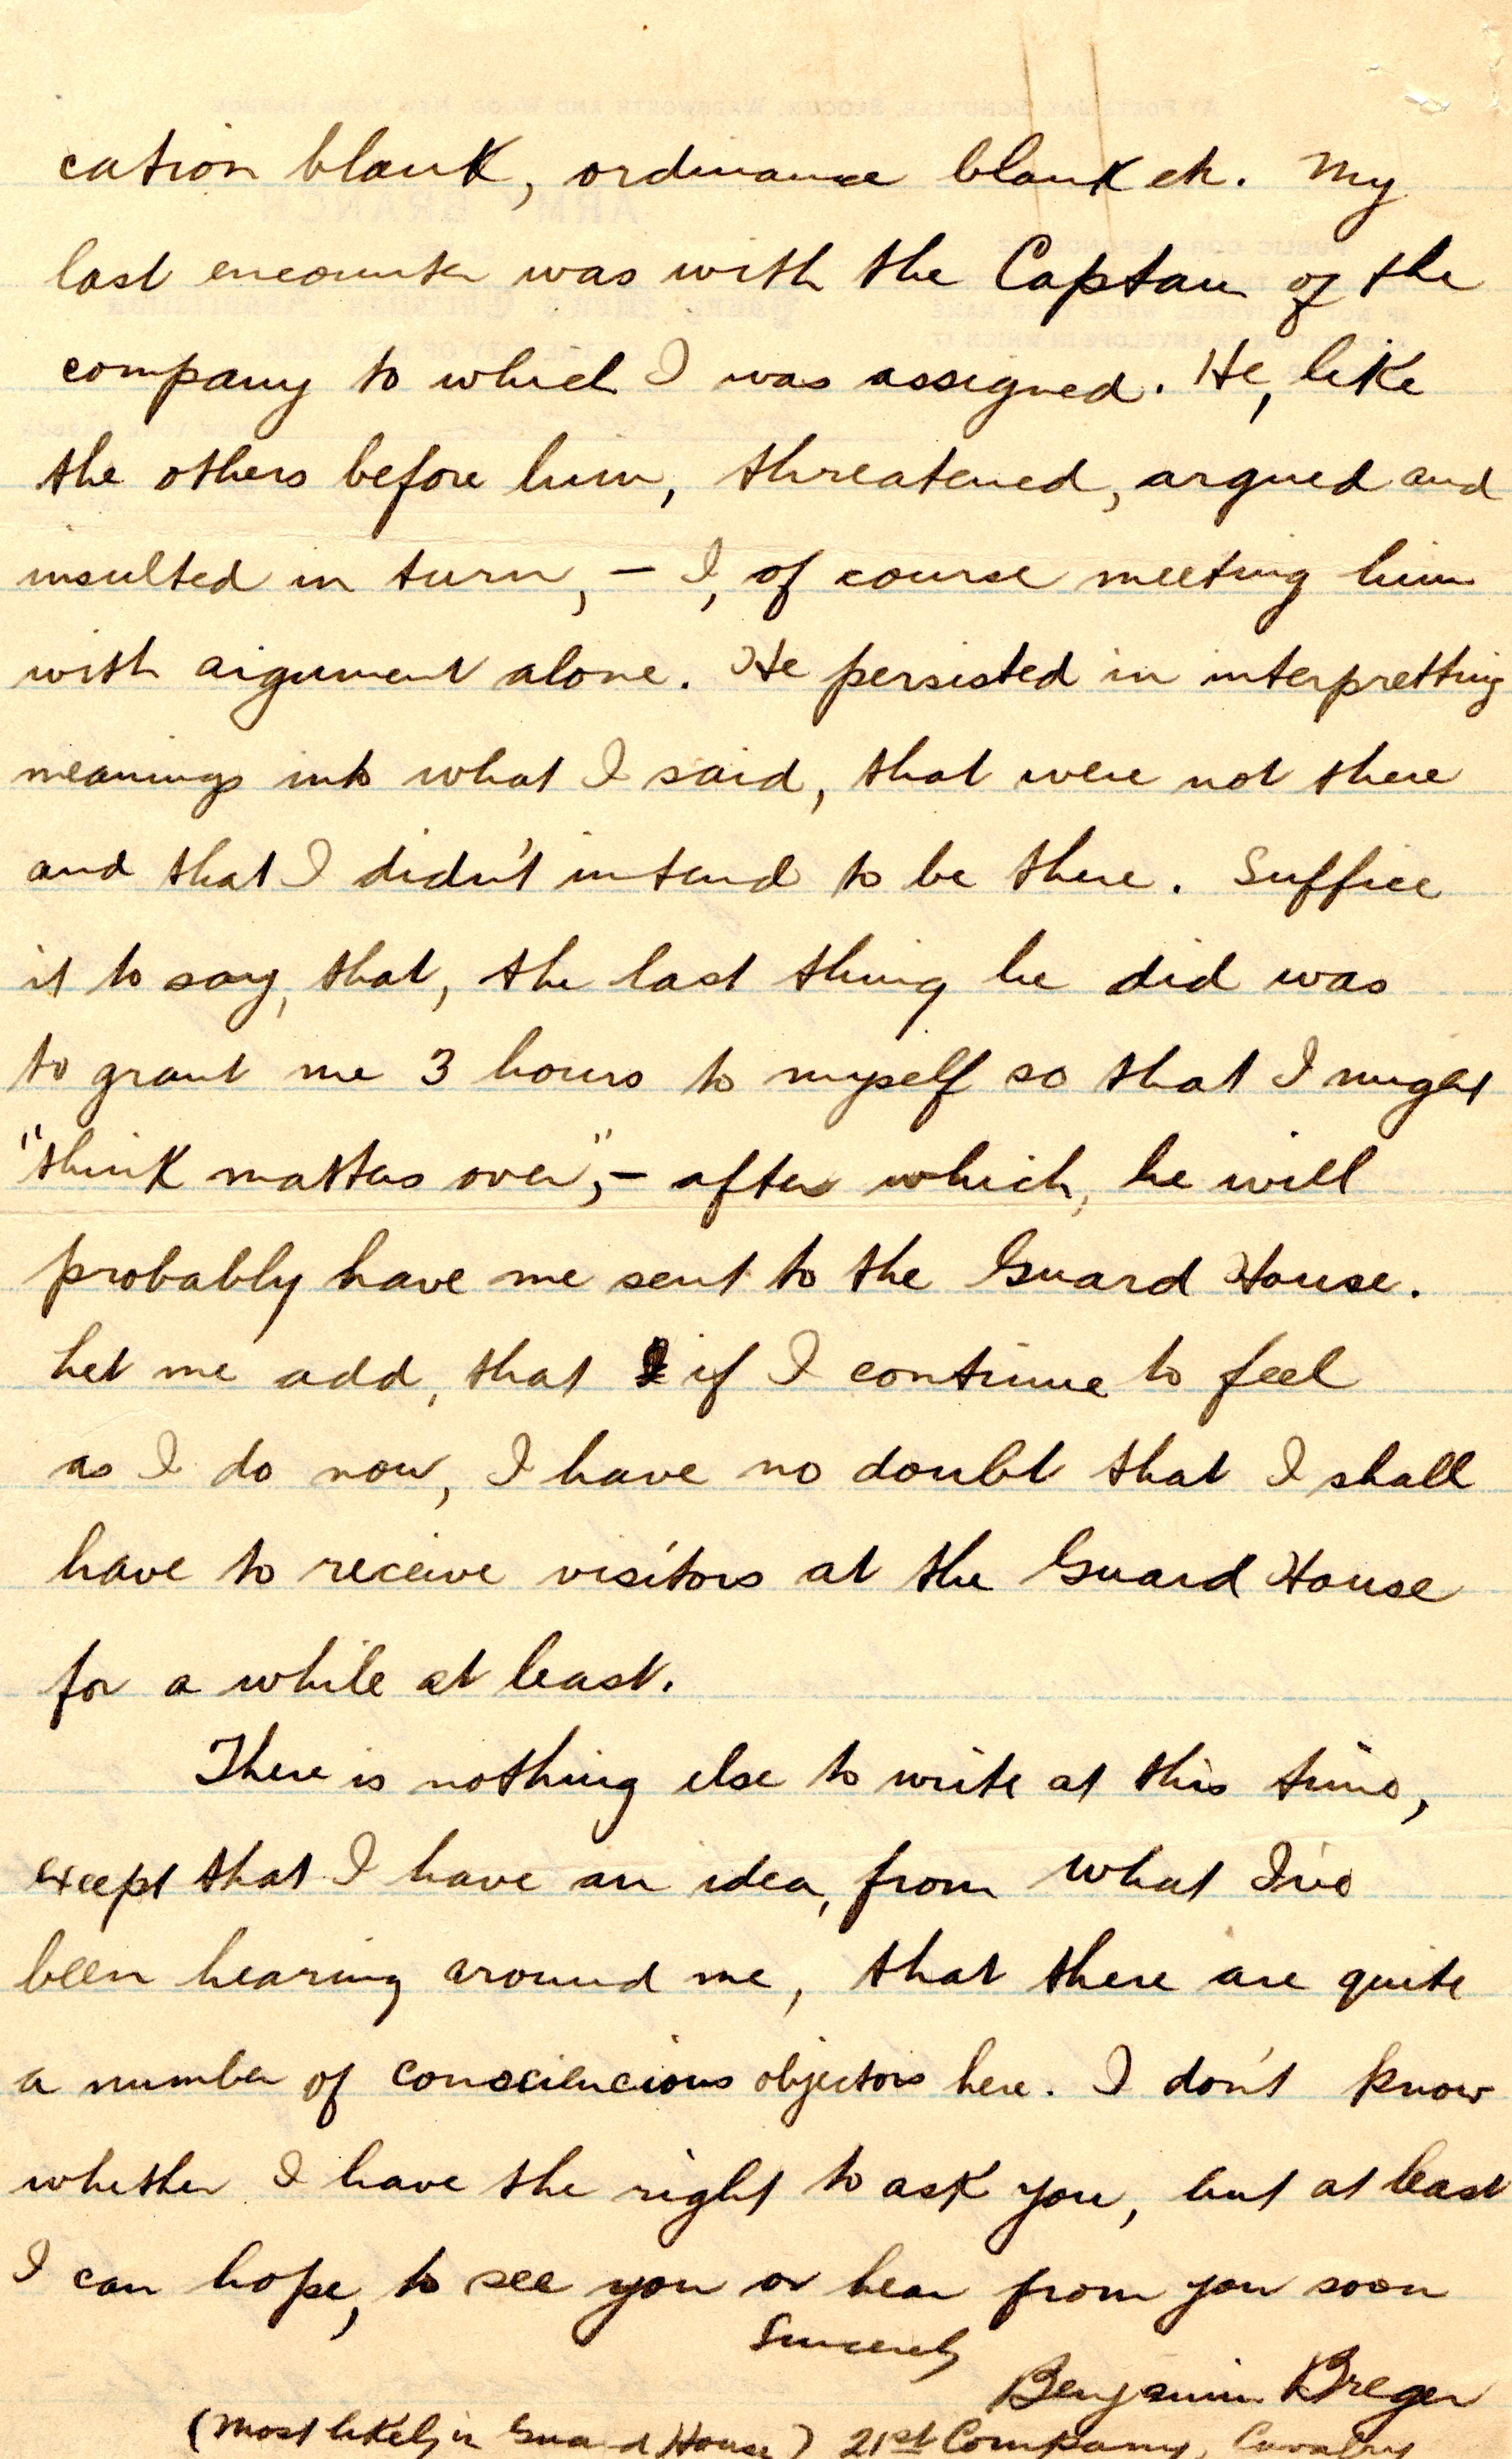 cation blank, ordinance blank etc. My
last encounter was with the Captain of the
company to which I was assigned. He, like
the others before him, threatened, argued and
insulted in turn, — I, of course meeting him
with argument alone. He persisted in interpretting
meanings into what I said, that were not there
and that I didn't intend to be there. Suffice
it to say, that, the last thing he did was
to grant me 3 hours to myself so that I might
"think matters over", — after which, he will
probably have me sent to the Guard House.
Let me add, that if I continue to feel
as I do now, I have no doubt that I shall
have to receive visitors at the Guard House
for a while at least.
There is nothing else to write at this time,
except that I have an idea, from what I've
been hearing around me, that there are quite
a number of consciencious objectors here. I don't know
whether I have the right to ask you, but at least
I can hope, to see you or hear from you soon
Sincerely
Benjamin Breger
(Most likely in Guard House) 21st Company, Cavalry